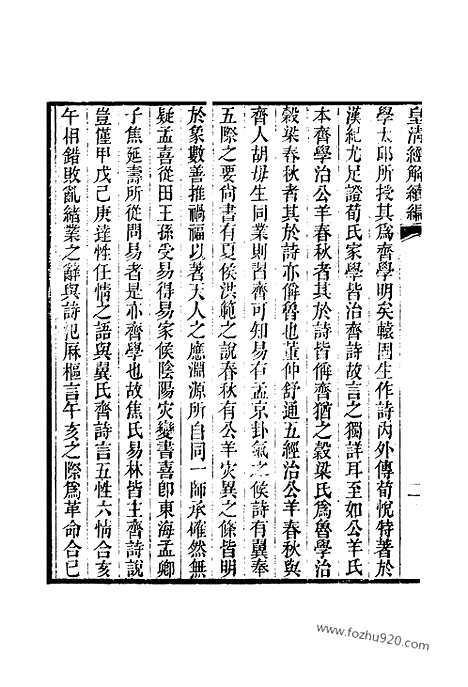 皇清經解續編
二
學太邱所授其爲齊學明矣轅固生作詩內外傳荀悅特著於
漢紀尤足證荀氏家學皆治齊詩故言之獨詳耳至如公羊氏
本齊學治公羊春秋者其於詩皆偁齊猶之穀梁氏爲魯學治
穀梁春秋者其於詩亦偁魯也董仲舒通五經治公羊春秋與
齊人胡母生同業則習齊可知易有孟京卦氣之候詩有翼奉
五際之要尙書有夏侯洪範之說春秋有公羊災異之條皆明
於象數善推禍福以著天人之應淵源所自同一師承確然無
疑孟喜從田王孫受易得易家候陰陽災變書喜卽東海孟卿
子焦延壽所從問易者是亦齊學也故焦氏易林皆主齊詩說
豈僅甲戊己庚達性任情之語與翼氏齊詩言五性六情合亥
午相錯敗亂緒業之辭與詩氾厤樞言午亥之際爲革命合已
www.fozhu920.com